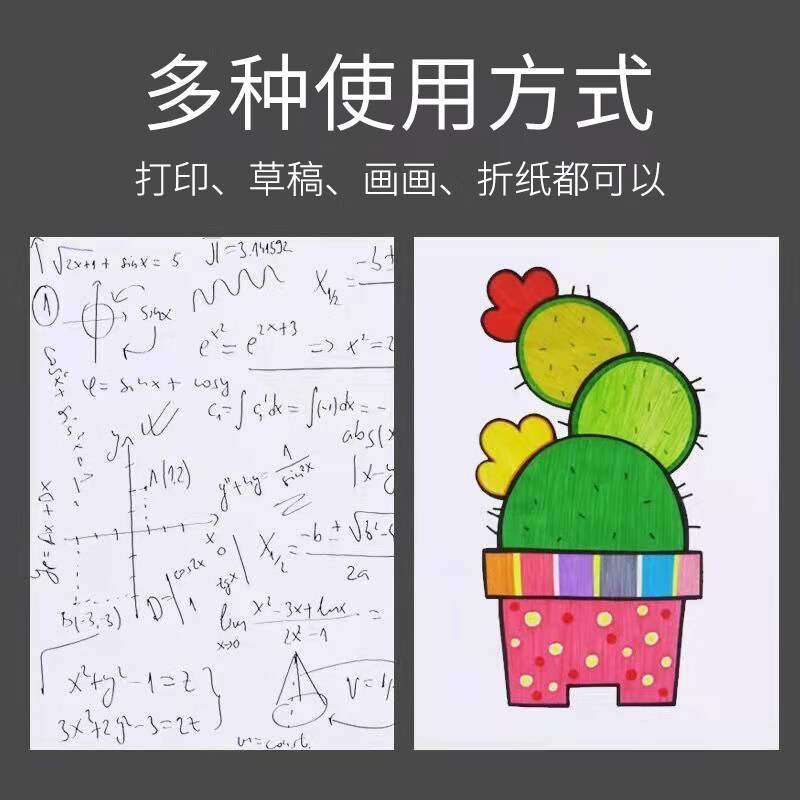 多种使用方式
打印、草稿、画画、折纸都可以
√2x+1 + sinx = 5
π = 3.141592
1
sinx
X₁/₂ = -b ±
e^x² = e^2x+3 => x² = 2
φ = sinx + cosy
C₁ = ∫ C₁'dx = ∫(-1)dx = -
abs(x
y
A(1,2)
y'' + 4y = 1/sin2x
|x-y
x
X₁/₂ = -b ± √b²-
2a
B(-3,-3)
D =
cos2x 0
1 tgx
lim x→0 x²-3x+lnx / 2x²-1 =
x²+y²-1=z
3x³+2y²-3=2z
V = 1/
v=const.